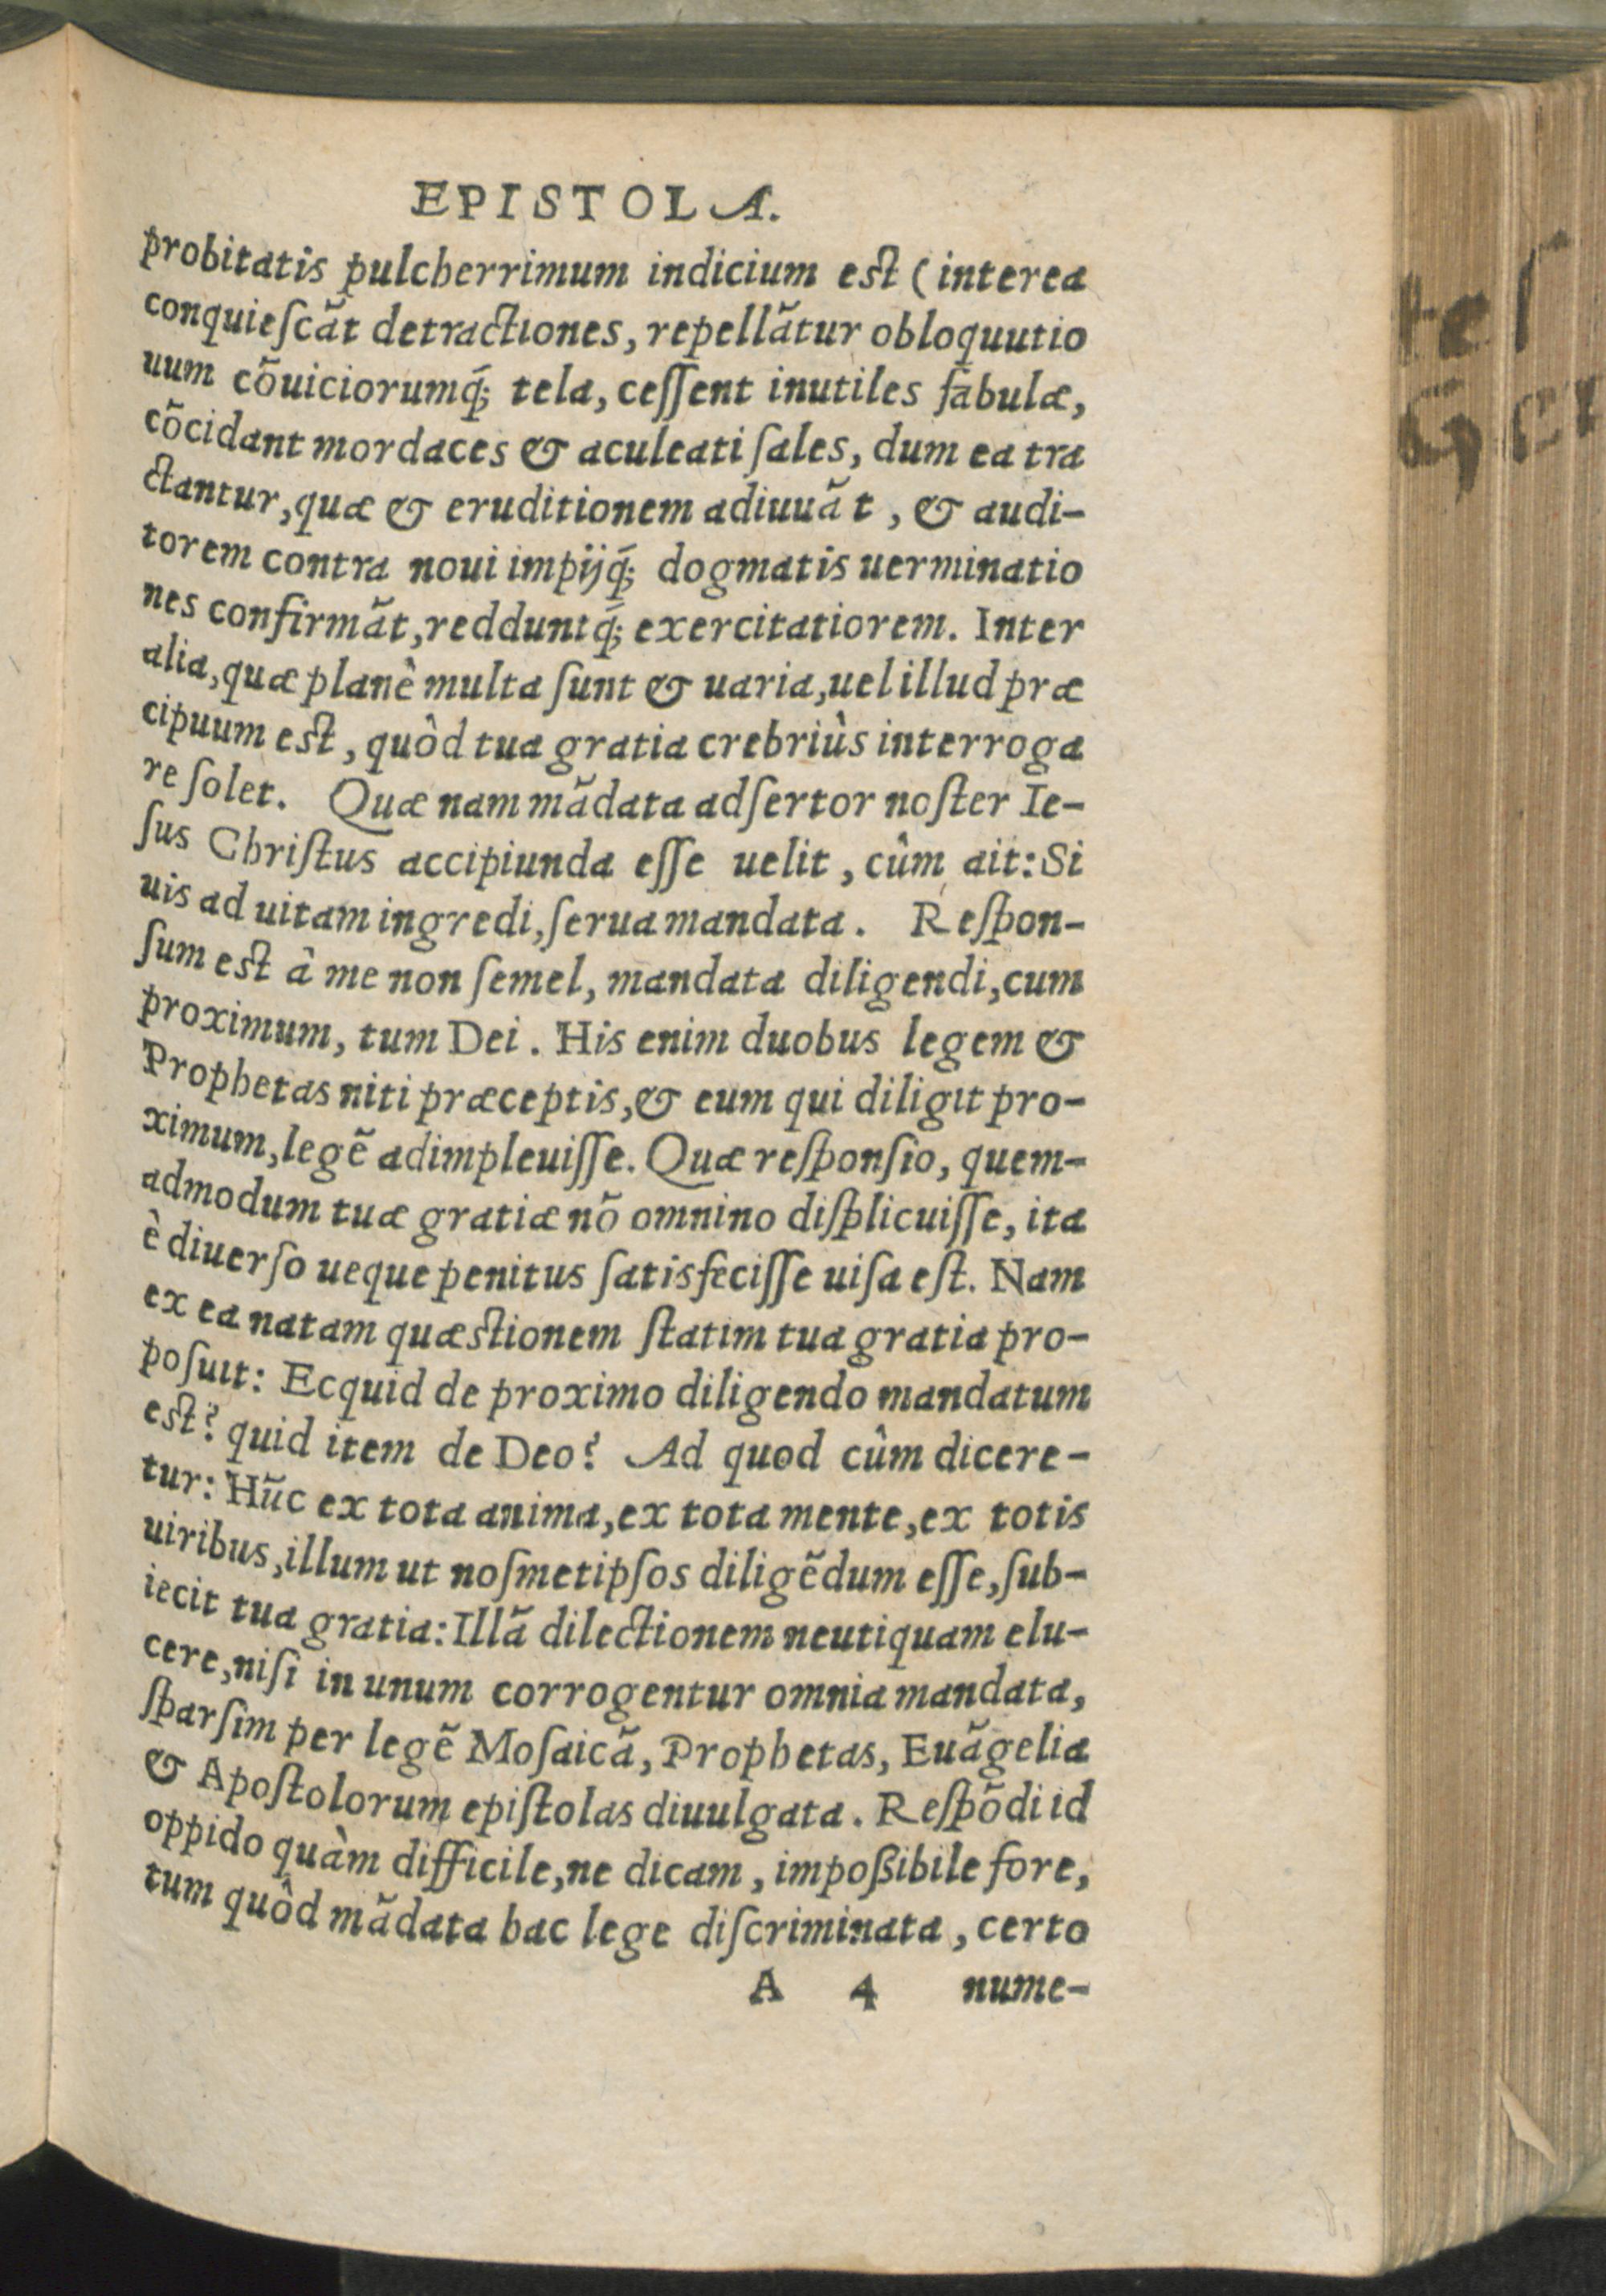 EPISTOLA.
probitatis pulcherrimum indicium est (interea
conquieſcãt detractiones, repellãtur obloquutio
uum cõuiciorumq́; tela, ceſſent inutiles fabulæ,
cõcidant mordaces & aculeati ſales, dum ea tra
ctantur, quæ & eruditionem adiuuãt, & audi-
torem contra noui impijq́; dogmatis uerminatio
nes confirmãt, redduntq́; exercitatiorem. Inter
alia, quæ planè multa ſunt & uaria, uel illud præ
cipuum est, quòd tua gratia crebriùs interroga
re ſolet. Quæ nam mãdata adſertor noſter Ie-
ſus Chriſtus accipiunda eſſe uelit, cûm ait: Si
uis ad uitam ingredi, ſerua mandata. Reſpon-
ſum est à me non ſemel, mandata diligendi, cum
proximum, tum Dei. His enim duobus legem &
Prophetas niti præceptis, & eum qui diligit pro-
ximum, legẽ adimpleuiſſe. Quæ reſponſio, quem-
admodum tuæ gratiæ nõ omnino diſplicuiſſe, ita
è diuerſo ueque penitus ſatisfeciſſe uiſa eſt. Nam
ex ea natam quæstionem ſtatim tua gratia pro-
poſuit: Ecquid de proximo diligendo mandatum
est? quid item de Deo? Ad quod cûm dicere-
tur: Hũc ex tota anima, ex tota mente, ex totis
uiribus, illum ut noſmetipſos diligẽdum eſſe, ſub-
iecit tua gratia: Illã dilectionem neutiquam elu-
cere, niſi in unum corrogentur omnia mandata,
ſparſim per legẽ Moſaicã, Prophetas, Euãgelia
& Apoſtolorum epiſtolas diuulgata. Reſpõdi id
oppido quàm difficile, ne dicam, impoßibile fore,
tum quòd mãdata hac lege diſcriminata, certo
A 4 nume-